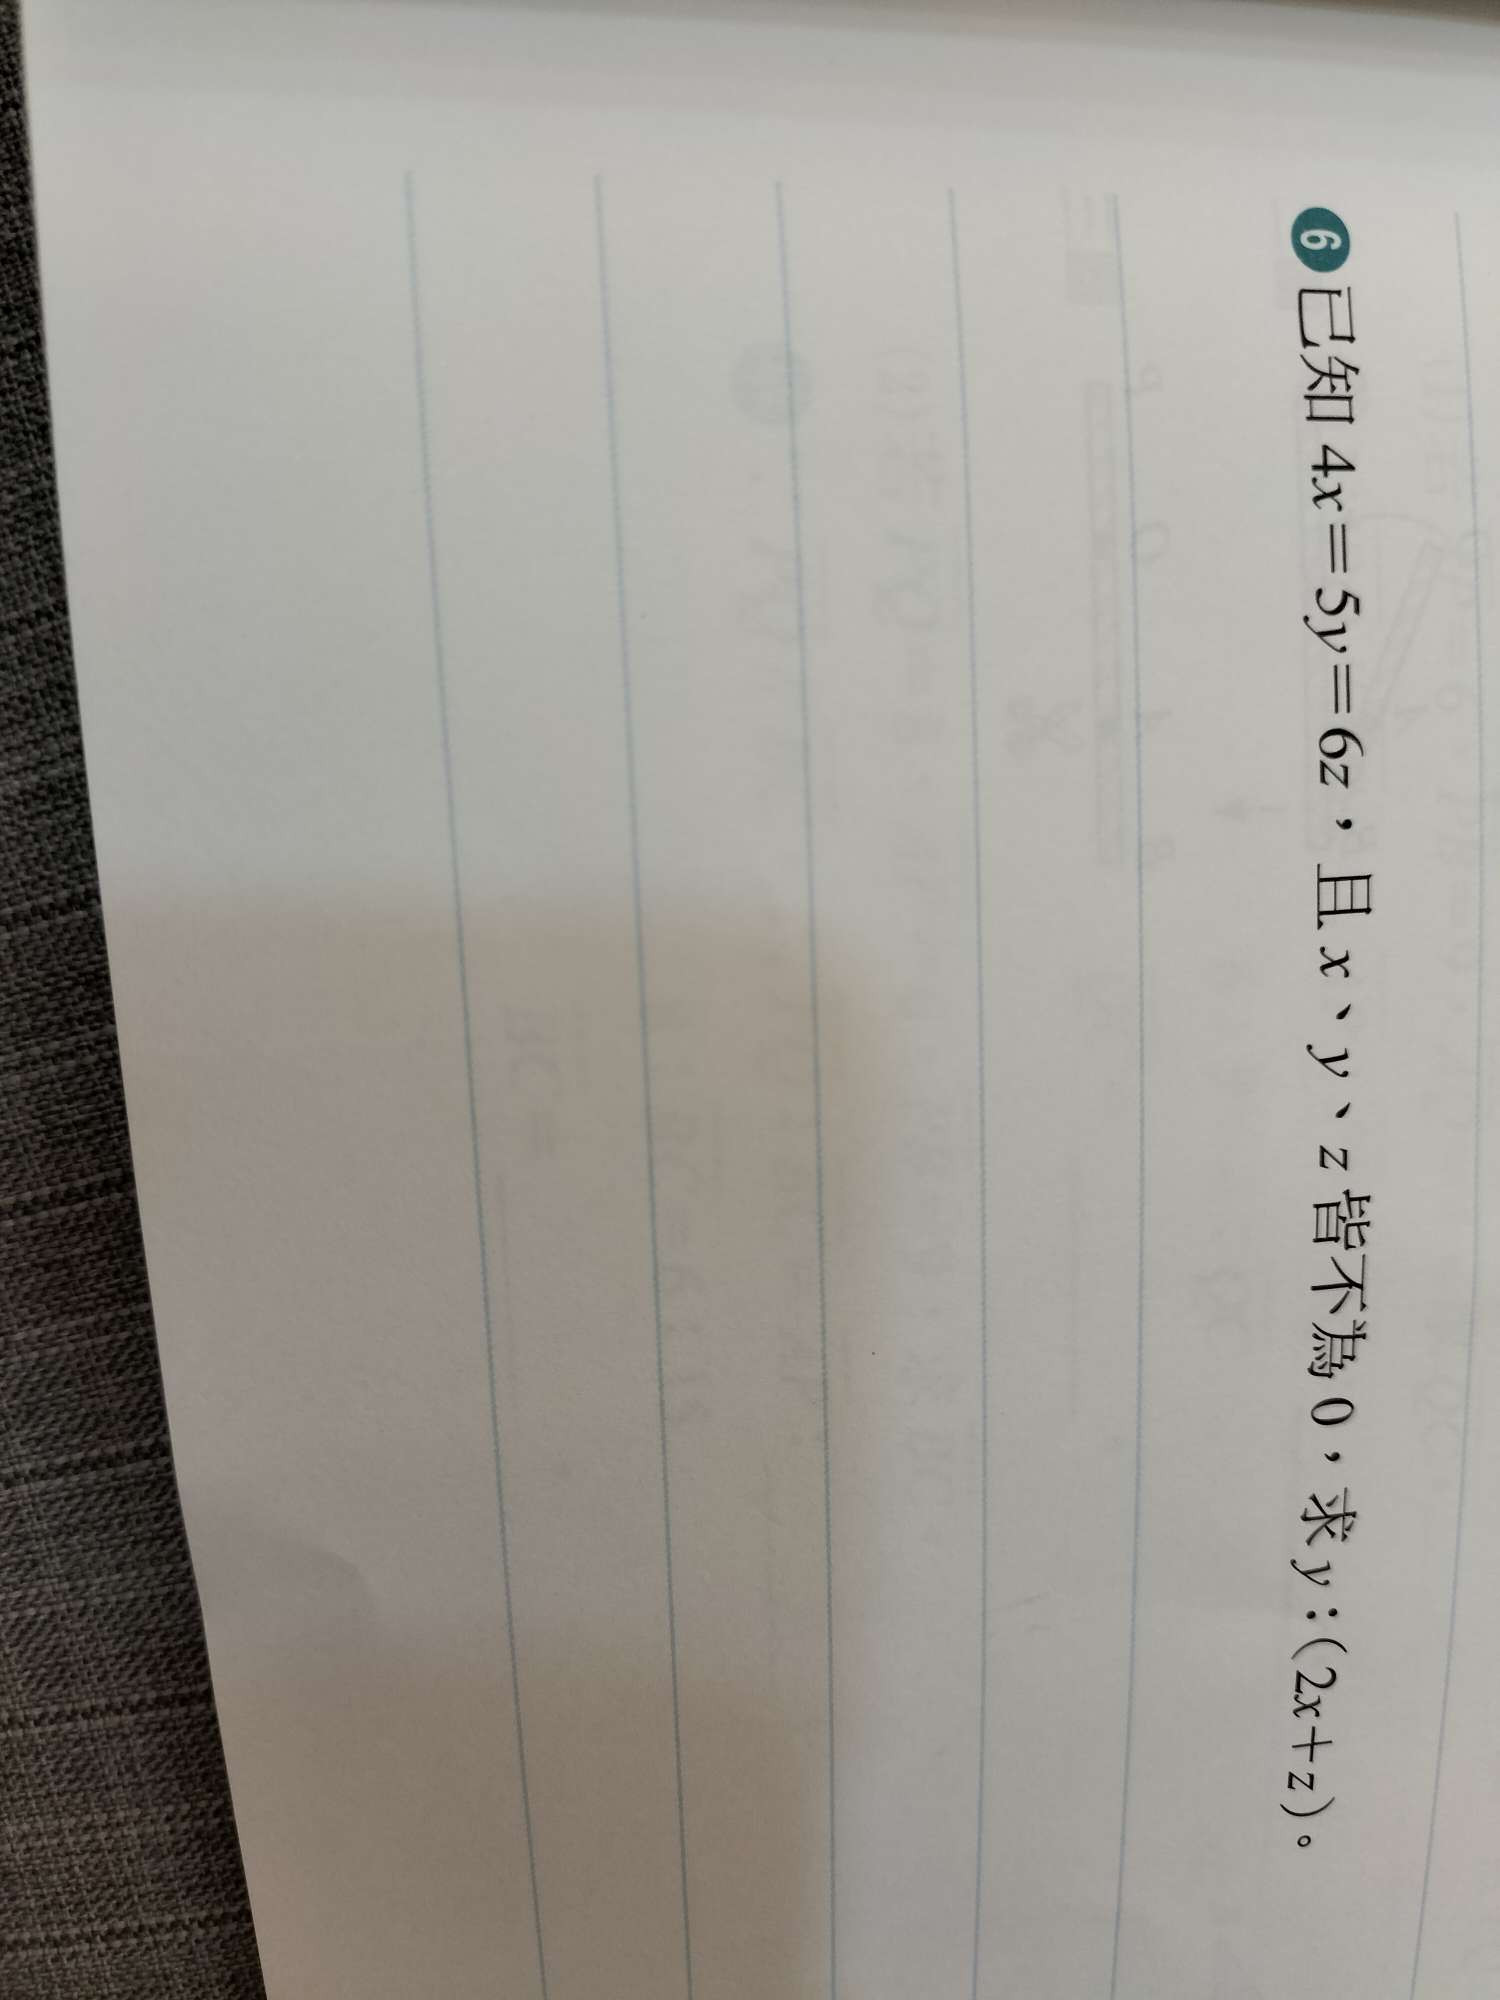 6 已知 4x=5y=6z，且 x、y、z 皆不為 0，求 y:(2x+z)。